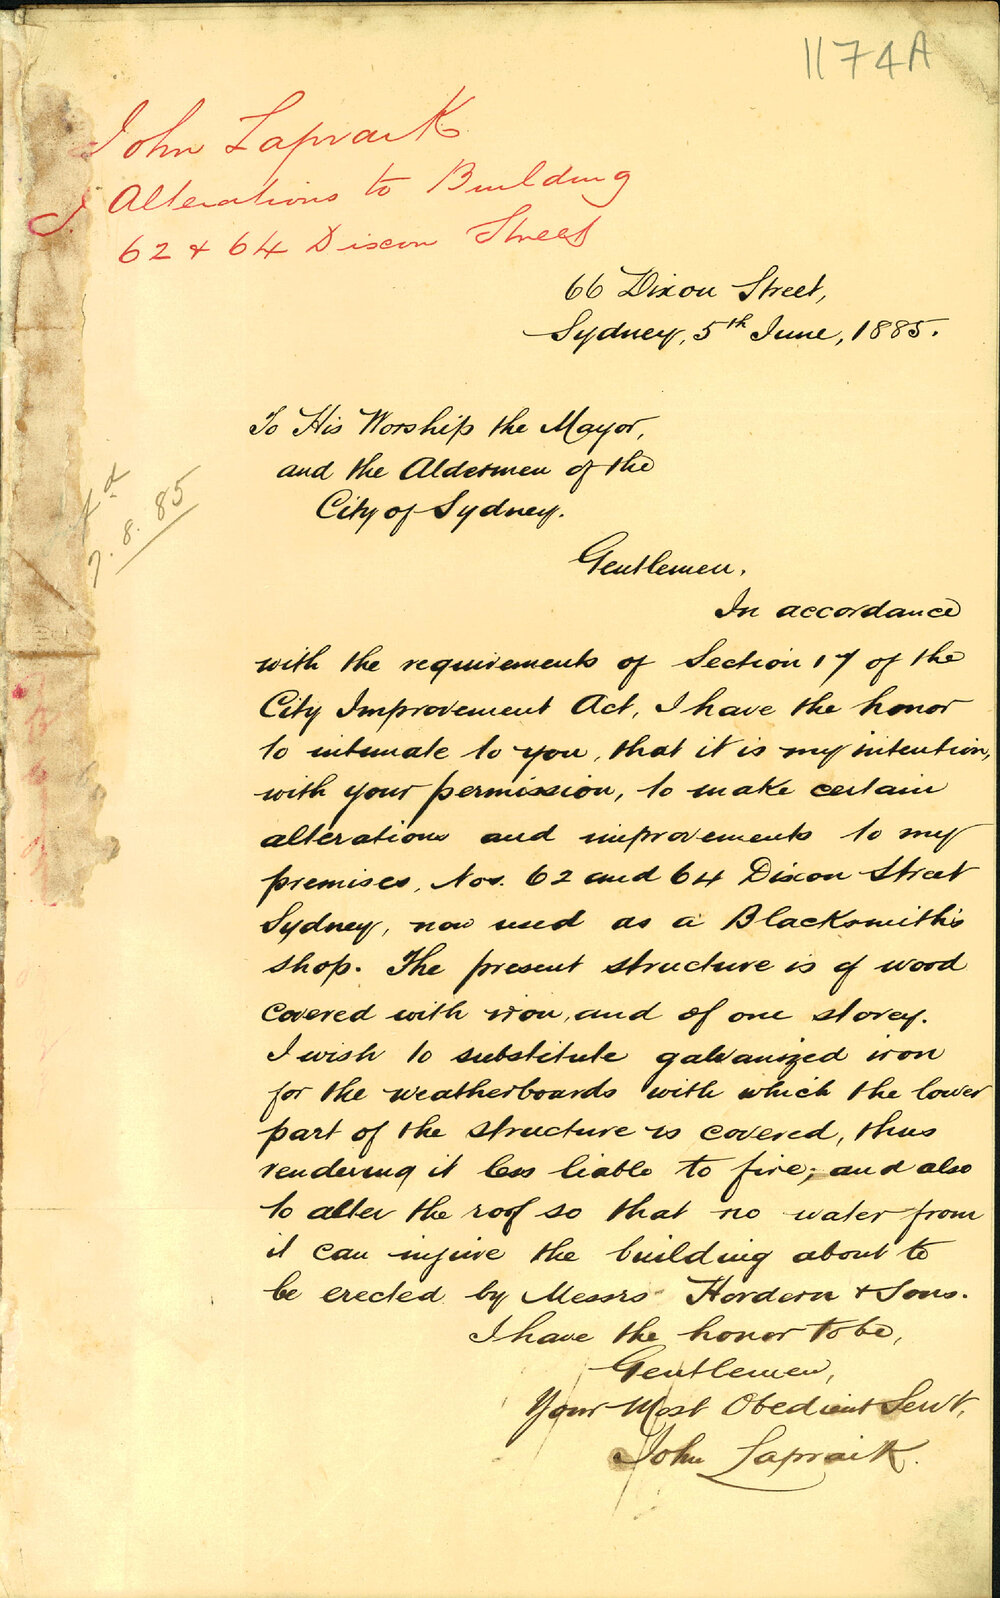 1174A
John Lapraik
Alterations to Building
62 & 64 Dixon Street
66 Dixon Street,
Sydney, 5th June, 1885.
To His Worship the Mayor,
and the Aldermen of the
City of Sydney.
7.8.85
Gentlemen.
In accordance
with the requirements of Section 17 of the
City Improvement Act, I have the honor
to intimate to you, that it is my intention,
with your permission, to make certain
alterations and improvements to my
premises, Nos. 62 and 64 Dixon Street
Sydney, now used as a Blacksmith's
shop. The present structure is of wood
covered with iron, and of one storey.
I wish to substitute galvanized iron
for the weatherboards with which the lower
part of the structure is covered, thus
rendering it less liable to fire; and also
to alter the roof so that no water from
it can injure the building about to
be erected by Messrs Hordern & Sons.
I have the honor to be,
Gentlemen,
Your Most Obedient Servt,
John Lapraik.